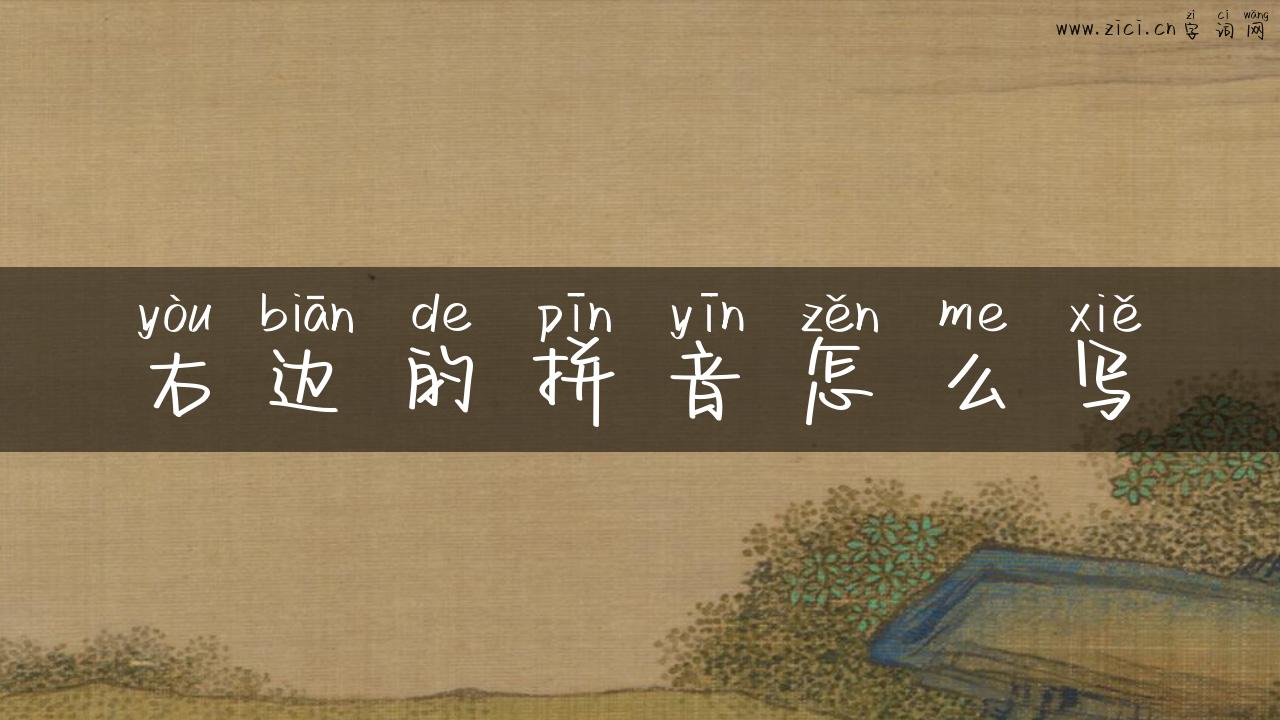 zì cí wǎng
www.zici.cn字词网
yòu biān de pīn yīn zěn me xiě
右边的拼音怎么写